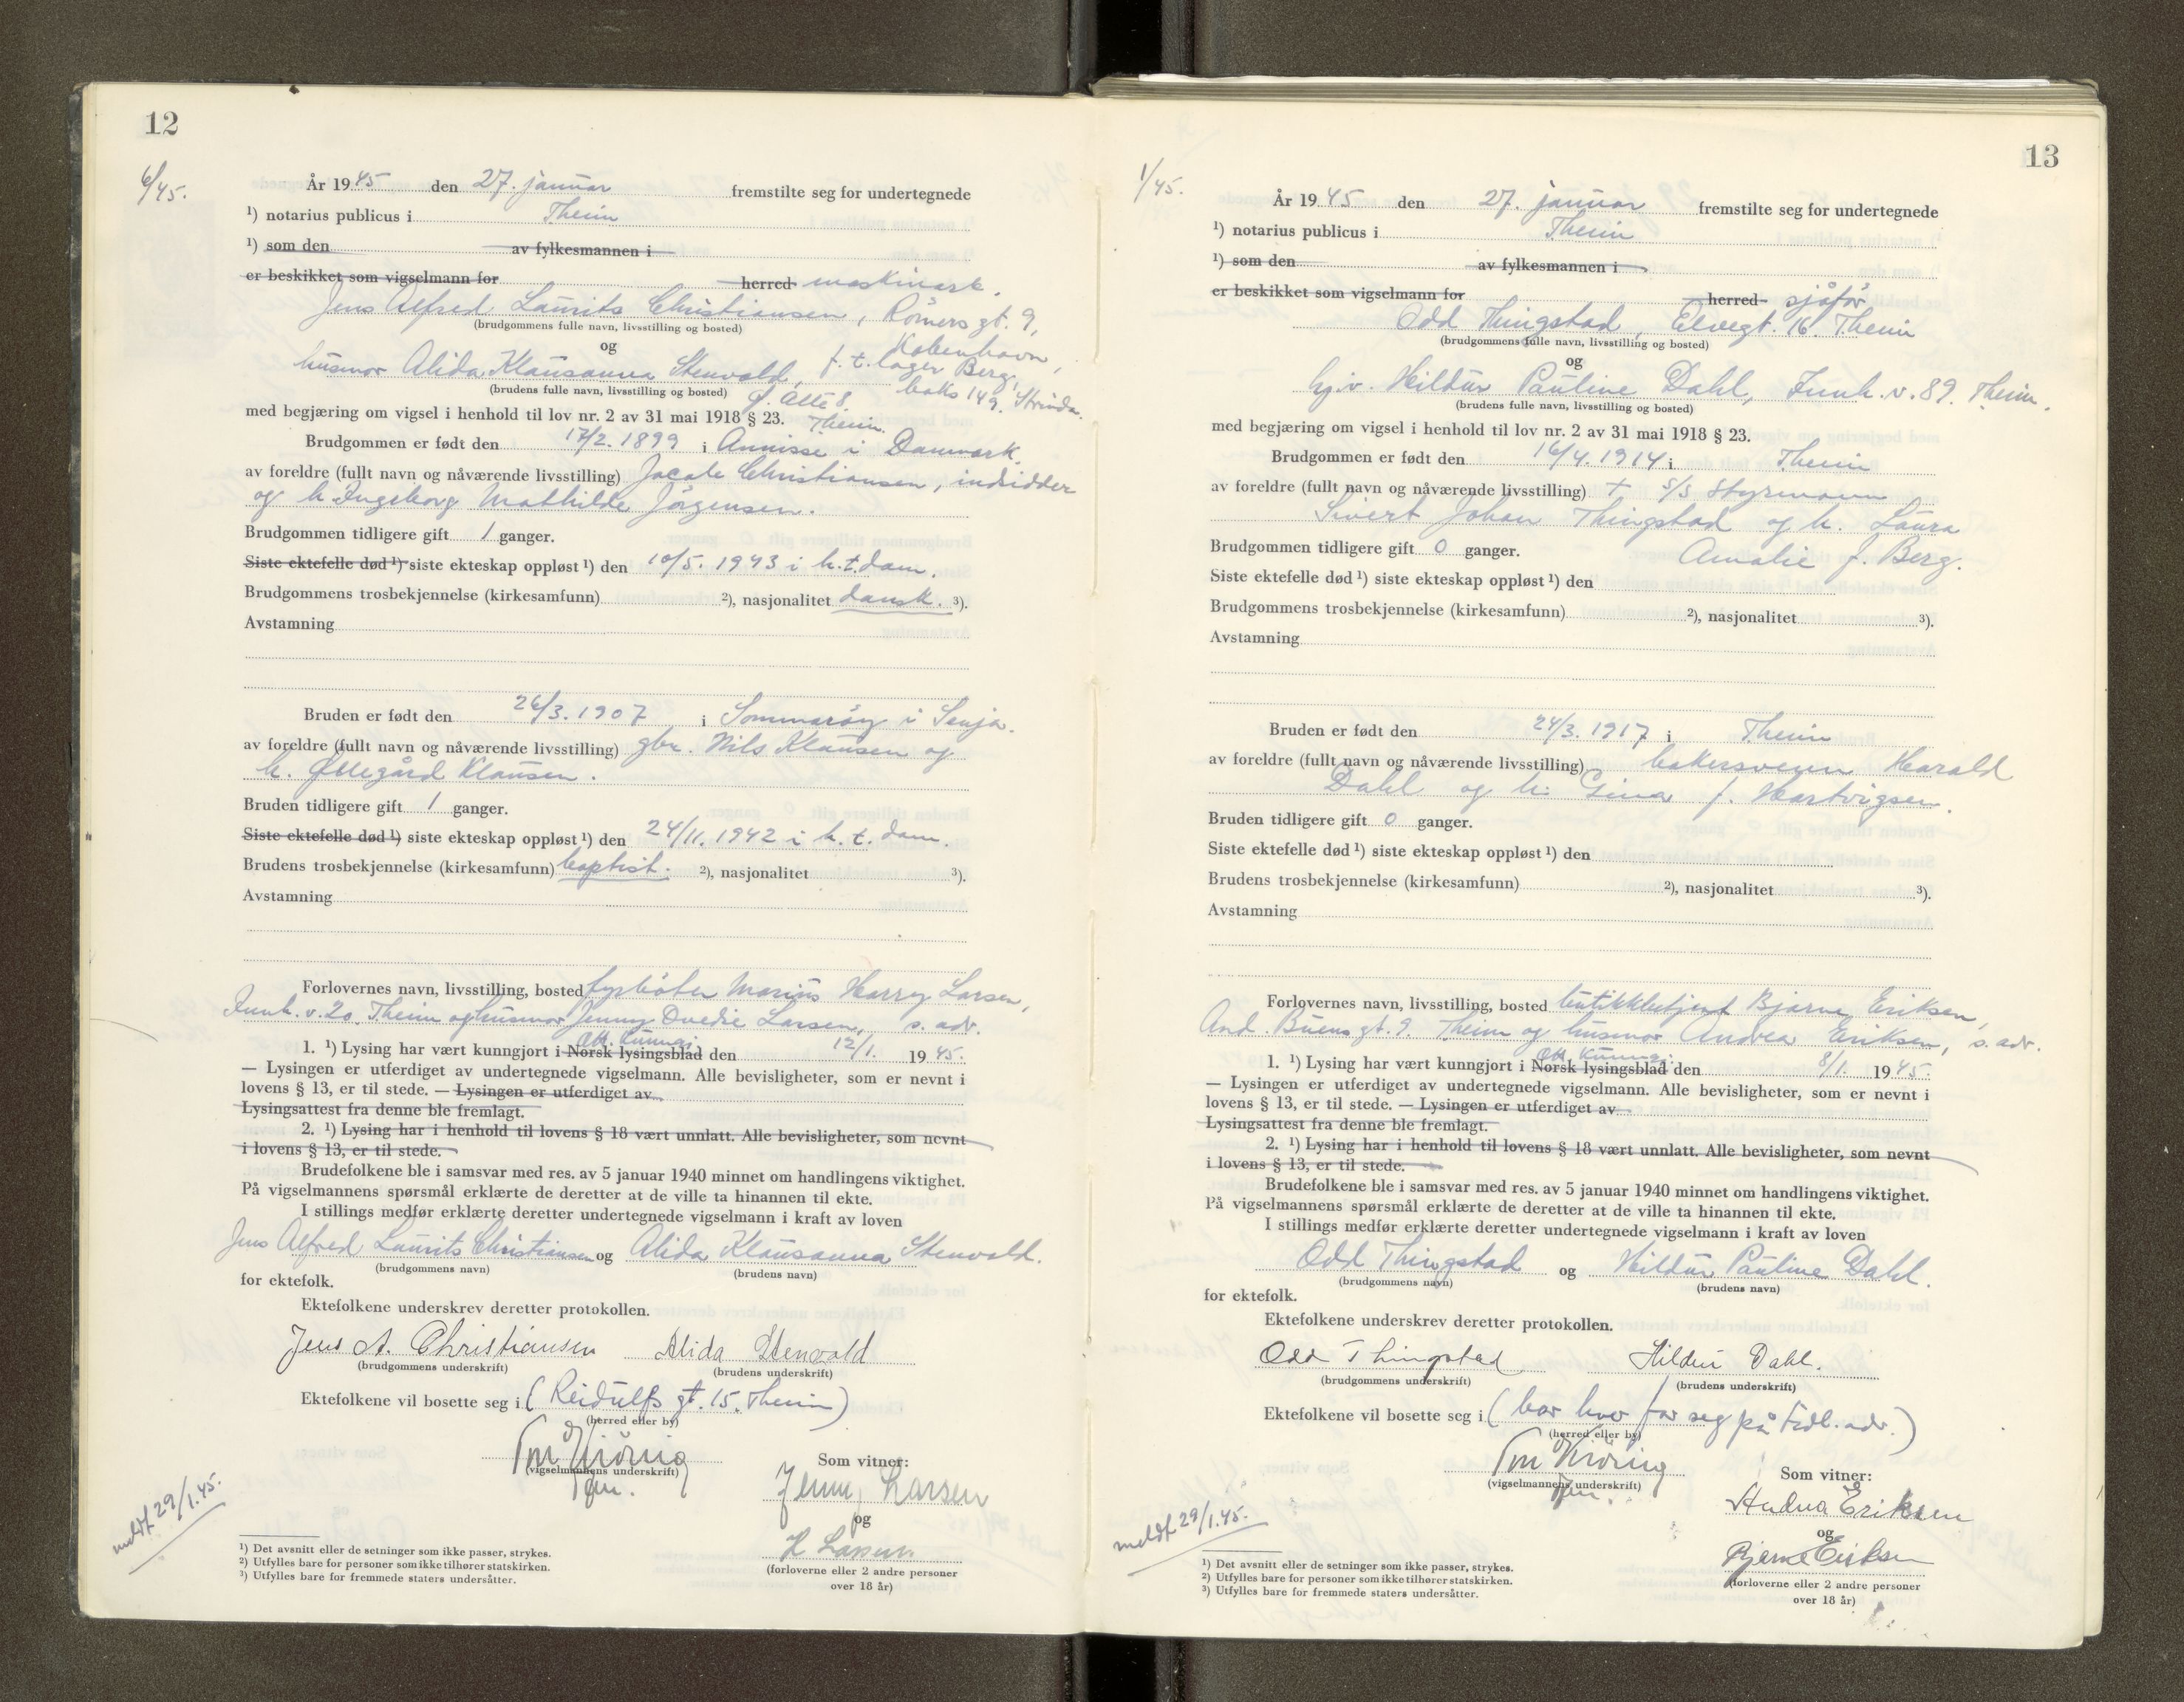 12
6/45.
År 1945 den 27. januar fremstilte seg for undertegnede
¹) notarius publicus i Theim
¹) som den av fylkesmannen i
er beskikket som vigselmann for herred maskinark.
Jens Alfred Laurits Christiansen, Römersgt. 9,
(brudgommens fulle navn, livsstilling og bosted)
København,
og
f. t. lager Berg,
husmor Alida Klausanna Stenvold,
boks 149, Strinda.
(brudens fulle navn, livsstilling og bosted)
med begjæring om vigsel i henhold til lov nr. 2 av 31 mai 1918 § 23. Theim.
Brudgommen er født den 17/2. 1899 i Annisse i Danmark.
av foreldre (fullt navn og nåværende livsstilling) Jacob Christiansen, indsidder
og h. Ingeborg Mathilde Jörgensen.
Brudgommen tidligere gift 1 ganger.
Siste ektefelle død ¹) siste ekteskap oppløst ¹) den 10/5. 1943 i h.t. dom.
Brudgommens trosbekjennelse (kirkesamfunn) ²), nasjonalitet dansk. ³).
Avstamning
Bruden er født den 26/3. 1907 i Sommaröy i Senja.
av foreldre (fullt navn og nåværende livsstilling) gbr. Nils Klausen og
h. Øllegård Klausen.
Bruden tidligere gift 1 ganger.
Siste ektefelle død ¹) siste ekteskap oppløst ¹) den 24/11. 1942 i h. t. dom.
Brudens trosbekjennelse (kirkesamfunn) baptist. ²), nasjonalitet ³).
Avstamning
Forlovernes navn, livsstilling, bosted fyrböter Marius Harry Larsen,
Innh. v. 20. Theim og husmor Jenny Ovedie Larsen, s. adr.
Off. kunngj.
1. ¹) Lysing har vært kunngjort i Norsk lysingsblad den 12/1. 1945.
— Lysingen er utferdiget av undertegnede vigselmann. Alle bevisligheter, som er nevnt i
lovens § 13, er til stede. — Lysingen er utferdiget av
Lysingsattest fra denne ble fremlagt.
2. ¹) Lysing har i henhold til lovens § 18 vært unnlatt. Alle bevisligheter, som nevnt
i lovens § 13, er til stede.
Brudefolkene ble i samsvar med res. av 5 januar 1940 minnet om handlingens viktighet.
På vigselmannens spørsmål erklærte de deretter at de ville ta hinannen til ekte.
I stillings medfør erklærte deretter undertegnede vigselmann i kraft av loven
Jens Alfred Laurits Christiansen og Alida Klausanna Stenvold.
(brudgommens navn) (brudens navn)
for ektefolk.
Ektefolkene underskrev deretter protokollen.
Jens A. Christiansen Alida Stenvold
(brudgommens underskrift) (brudens underskrift)
Ektefolkene vil bosette seg i (Reidulfs gt. 15. Theim)
(herred eller by)
Som vitner:
(vigselmannens underskrift)
Jenny Larsen
og
H Larsen
(forloverne eller 2 andre personer
over 18 år)
meldt 29/1.45.
¹) Det avsnitt eller de setninger som ikke passer, strykes.
²) Utfylles bare for personer som ikke tilhører statskirken.
³) Utfylles bare for fremmede staters undersåtter.
13
1/45.
År 1945 den 27. januar fremstilte seg for undertegnede
¹) notarius publicus i Theim
¹) som den av fylkesmannen i
er beskikket som vigselmann for herred sjåför
Odd Thingstad, Elvegt. 16. Theim
(brudgommens fulle navn, livsstilling og bosted)
og
hj.v. Hildur Pauline Dahl, Innh. v. 89. Theim.
(brudens fulle navn, livsstilling og bosted)
med begjæring om vigsel i henhold til lov nr. 2 av 31 mai 1918 § 23.
Brudgommen er født den 16/4. 1914 i Theim
av foreldre (fullt navn og nåværende livsstilling) + s/s Styrmann
Sivert Johan Thingstad og h. Laura
Brudgommen tidligere gift 0 ganger. Amalie f. Berg.
Siste ektefelle død ¹) siste ekteskap oppløst ¹) den
Brudgommens trosbekjennelse (kirkesamfunn) ²), nasjonalitet ³).
Avstamning
Bruden er født den 24/3. 1917 i Theim
av foreldre (fullt navn og nåværende livsstilling) bakersvenn Harald
Dahl og h. Gina f. Hartvigsen.
Bruden tidligere gift 0 ganger.
Siste ektefelle død ¹) siste ekteskap oppløst ¹) den
Brudens trosbekjennelse (kirkesamfunn) ²), nasjonalitet ³).
Avstamning
Forlovernes navn, livsstilling, bosted butikkbetjent Bjarne Eriksen,
And. Buens gt. 9. Theim og husmor Andrea Eriksen, s. adr.
Off. kunngj.
1. ¹) Lysing har vært kunngjort i Norsk lysingsblad den 8/1. 1945.
— Lysingen er utferdiget av undertegnede vigselmann. Alle bevisligheter, som er nevnt i
lovens § 13, er til stede. — Lysingen er utferdiget av
Lysingsattest fra denne ble fremlagt.
2. ¹) Lysing har i henhold til lovens § 18 vært unnlatt. Alle bevisligheter, som nevnt
i lovens § 13, er til stede.
Brudefolkene ble i samsvar med res. av 5 januar 1940 minnet om handlingens viktighet.
På vigselmannens spørsmål erklærte de deretter at de ville ta hinannen til ekte.
I stillings medfør erklærte deretter undertegnede vigselmann i kraft av loven
Odd Thingstad og Hildur Pauline Dahl.
(brudgommens navn) (brudens navn)
for ektefolk.
Ektefolkene underskrev deretter protokollen.
Odd Thingstad Hildur Dahl.
(brudgommens underskrift) (brudens underskrift)
Ektefolkene vil bosette seg i (bor hver for seg på tidl. adr.)
(herred eller by)
Som vitner:
(vigselmannens underskrift)
Andrea Eriksen
og
Bjarne Eriksen
(forloverne eller 2 andre personer
over 18 år)
meldt 29/1.45.
¹) Det avsnitt eller de setninger som ikke passer, strykes.
²) Utfylles bare for personer som ikke tilhører statskirken.
³) Utfylles bare for fremmede staters undersåtter.